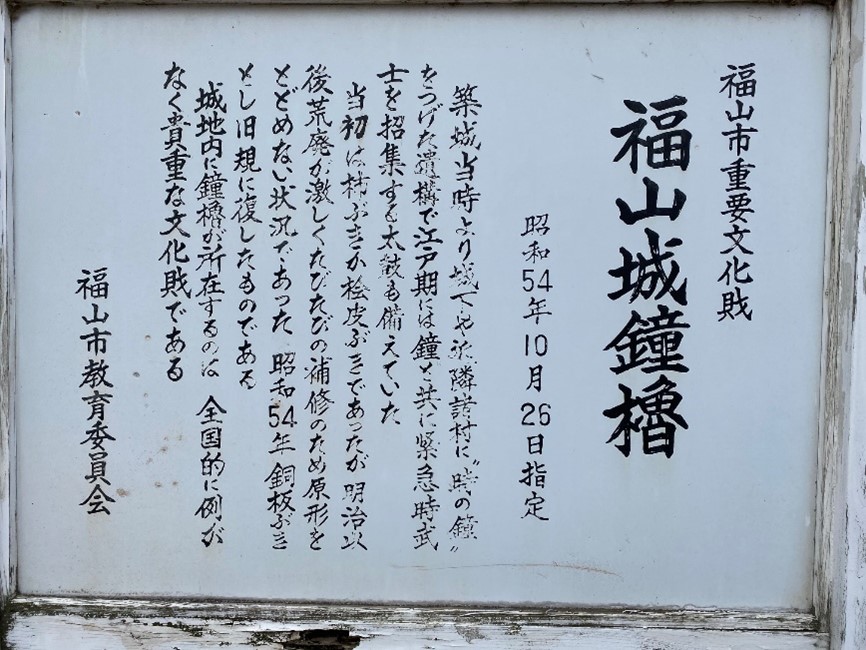 福山市重要文化財
福山城鐘櫓
昭和54年10月26日指定
築城当時より城下や近隣諸村に〝時の鐘〟
をつげた遺構で江戸期には鐘と共に緊急時武
士を招集する太鼓も備えていた
当初は柿ぶきか桧皮ぶきであったが 明治以
後荒廃が激しくたびたびの補修のため原形を
とどめない状況であった 昭和54年 銅板ぶき
とし旧規に復したものである
城地内に鐘櫓が所在するのは 全国的に例が
なく貴重な文化財である
福山市教育委員会